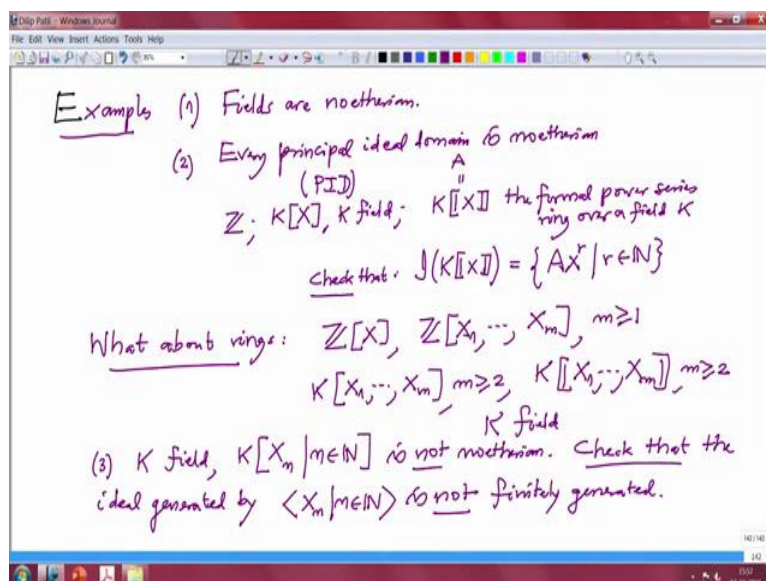 Dilip Patil - Windows Journal
File Edit View Insert Actions Tools Help
Examples (1) Fields are noetherian.
(2) Every principal ideal domain is noetherian
(PID)
A
=
ℤ; K[X], K field; K⟦X⟧ the formal power series
ring over a field K
Check that: I(K⟦X⟧) = {AX^r | r∈ℕ}
What about rings: ℤ[X], ℤ[X₁,⋯, X_m], m≥1
K[X₁,⋯, X_m], m≥2, K⟦X₁,⋯, X_m⟧, m≥2
K field
(3) K field, K[X_m | m∈ℕ] is not noetherian. Check that the
ideal generated by ⟨X_m | m∈ℕ⟩ is not finitely generated.
142/142
142
1557